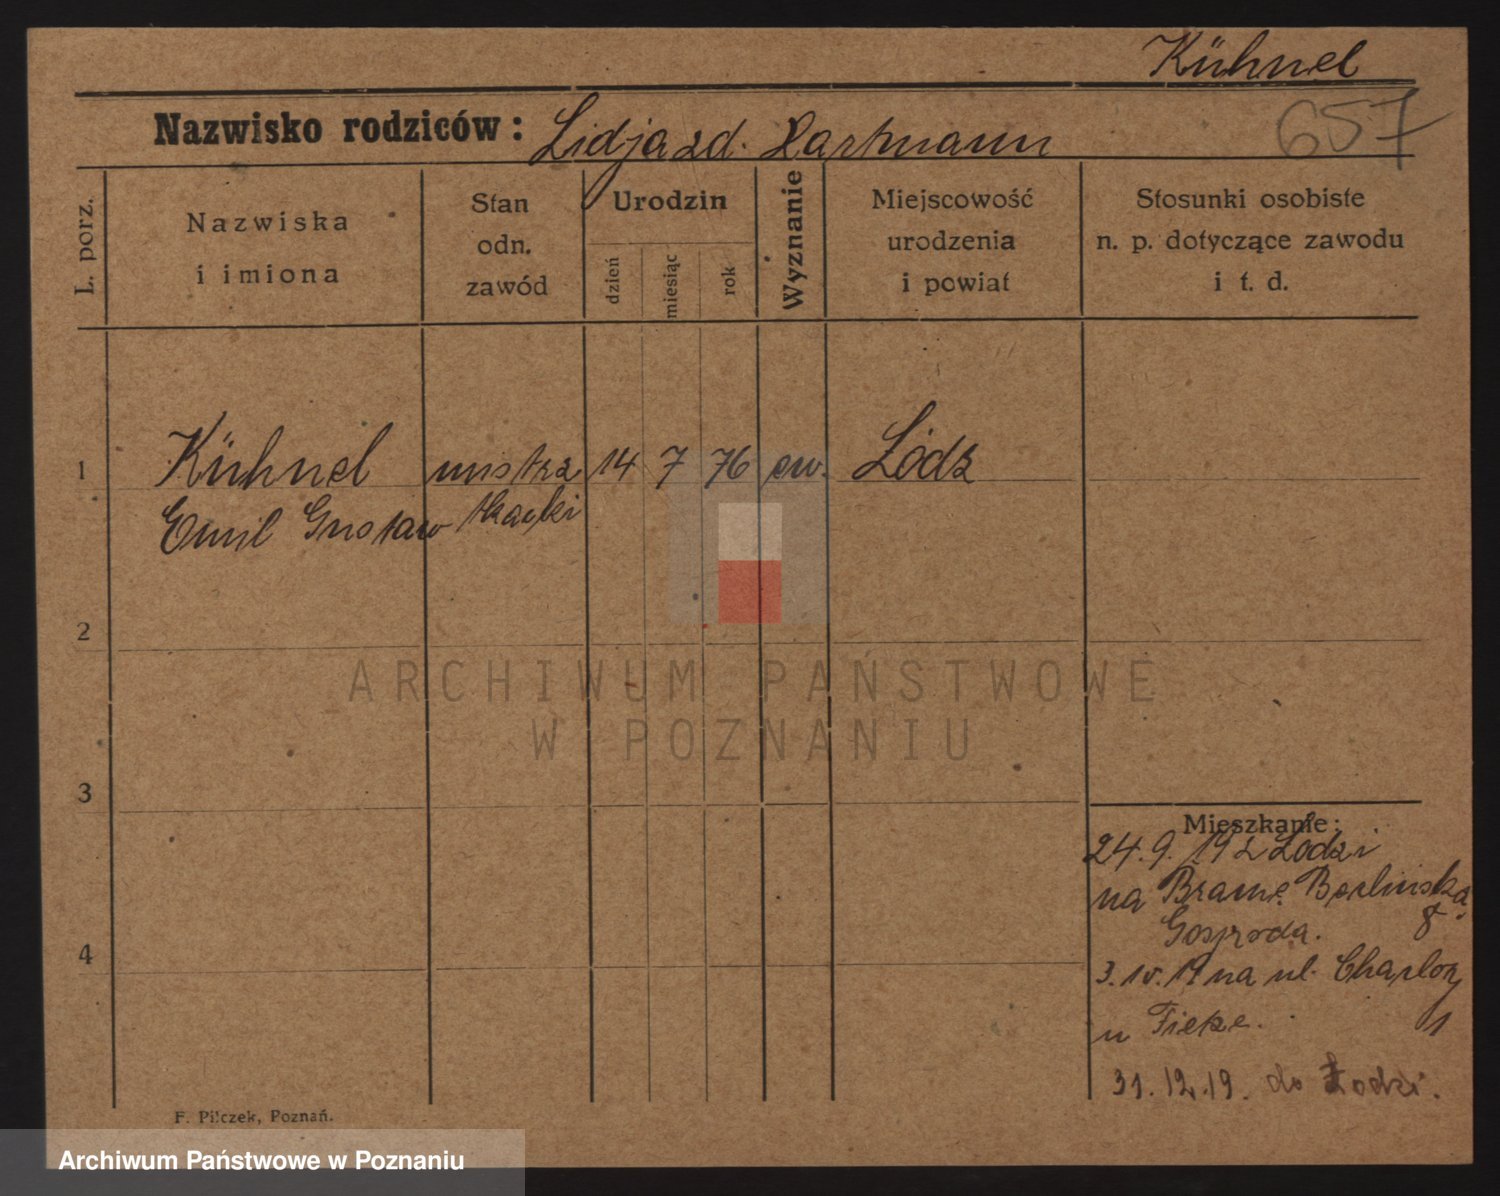 Kühnel
Nazwisko rodziców: Lidja zd. Hartmann
657
L. porz.
Nazwiska
i imiona
Stan
odn.
zawód
Urodzin
dzień
miesiąc
rok
Wyznanie
Miejscowość
urodzenia
i powiat
Stosunki osobiste
n. p. dotyczące zawodu
i t. d.
1
Kühnel mistrz 14 7 76 ew. Łódz
Emil Gustaw tkacki
2
ARCHIWUM PAŃSTWOWE
W POZNANIU
3
Mieszkanie:
24. 9. 19 z Łodzi
na Bramę Berlińską
Gospoda. 8.
4
3. 10. 19 na ul.
u 1
31. 12. 19. do Łodzi.
F. Pilczek, Poznań.
Archiwum Państwowe w Poznaniu